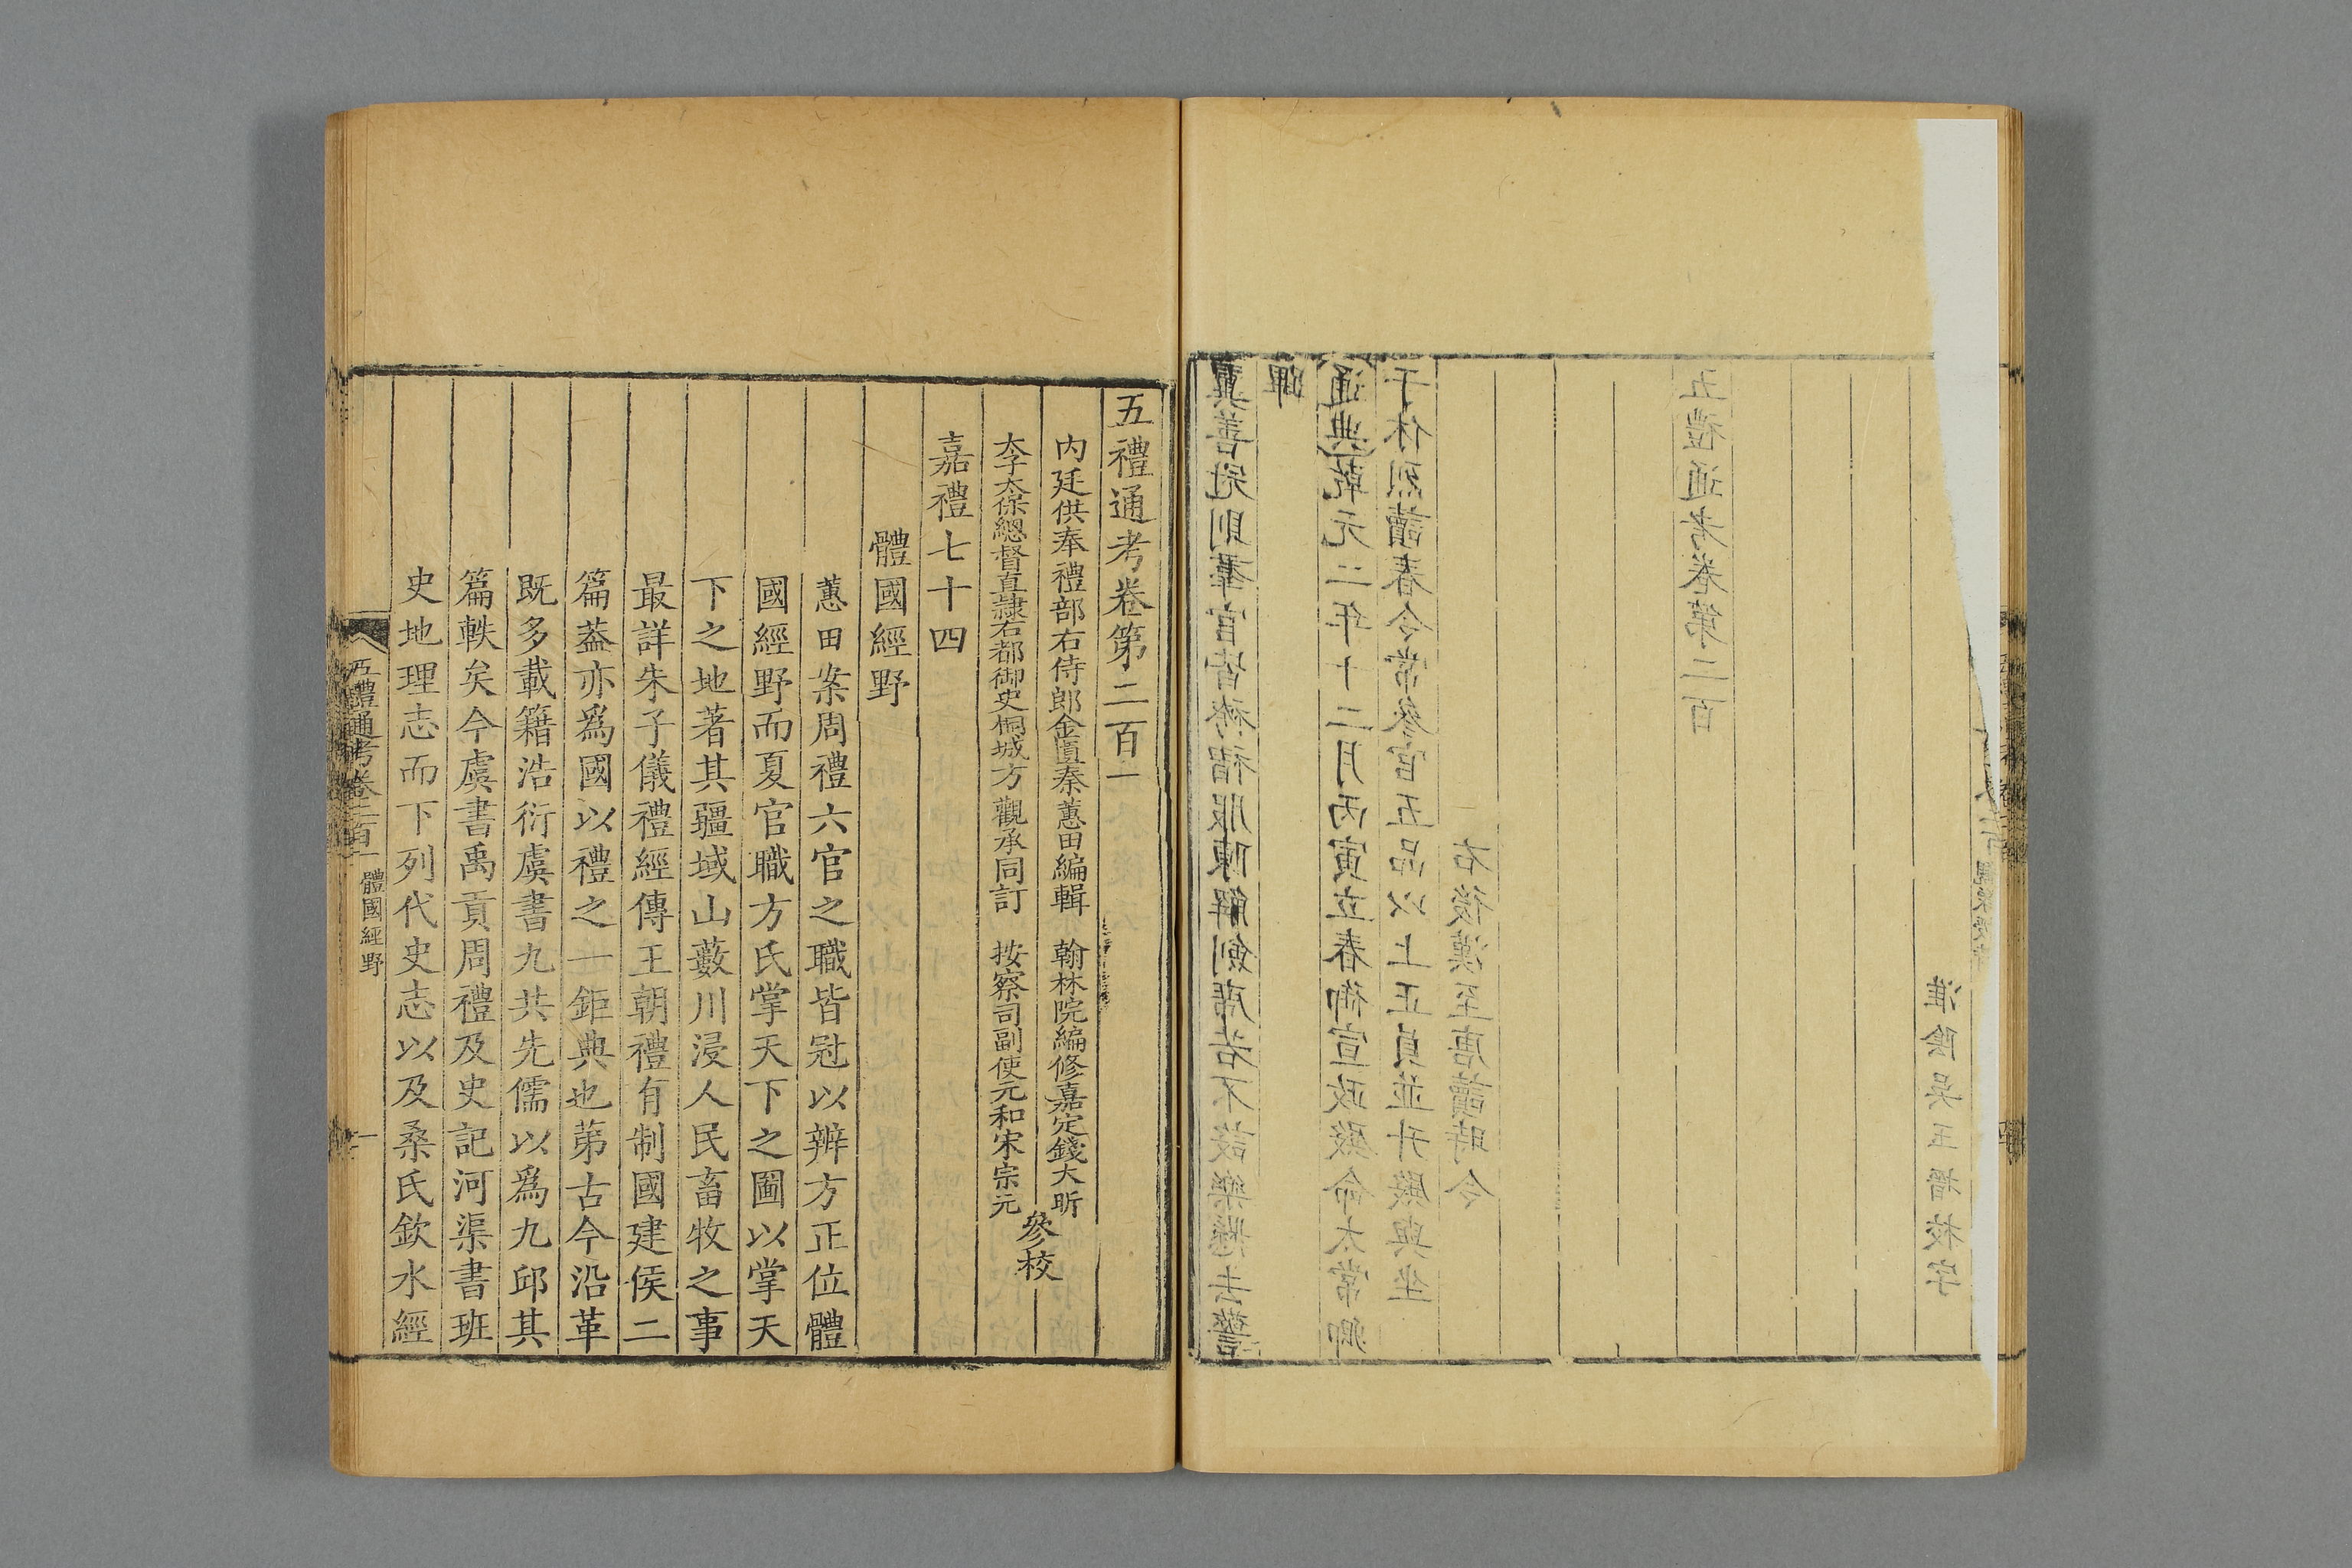 翼善冠則羣官皆袴褶服陳解劍席若不設樂懸去警
蹕
通典乾元二年十二月丙寅立春御宣政殿命太常卿
于休烈讀春令常參官五品以上正員並升殿與坐
右後漢至唐讀時令
五禮通考卷第二百
淮陰吳玉搢校字
五禮通考卷第二百一
內廷供奉禮部右侍郎金匱秦蕙田編輯 翰林院編修嘉定錢大昕
太子太保總督直隸右都御史桐城方觀承同訂 按察司副使元和宋宗元
參校
嘉禮七十四
體國經野
蕙田案周禮六官之職皆冠以辨方正位體
國經野而夏官職方氏掌天下之圖以掌天
下之地著其疆域山藪川浸人民畜牧之事
最詳朱子儀禮經傳王朝禮有制國建侯二
篇葢亦爲國以禮之一鉅典也第古今沿革
既多載籍浩衍虞書九共先儒以爲九邱其
篇軼矣今虞書禹貢周禮及史記河渠書班
史地理志而下列代史志以及桑氏欽水經
五禮通考卷二百一 體國經野
一